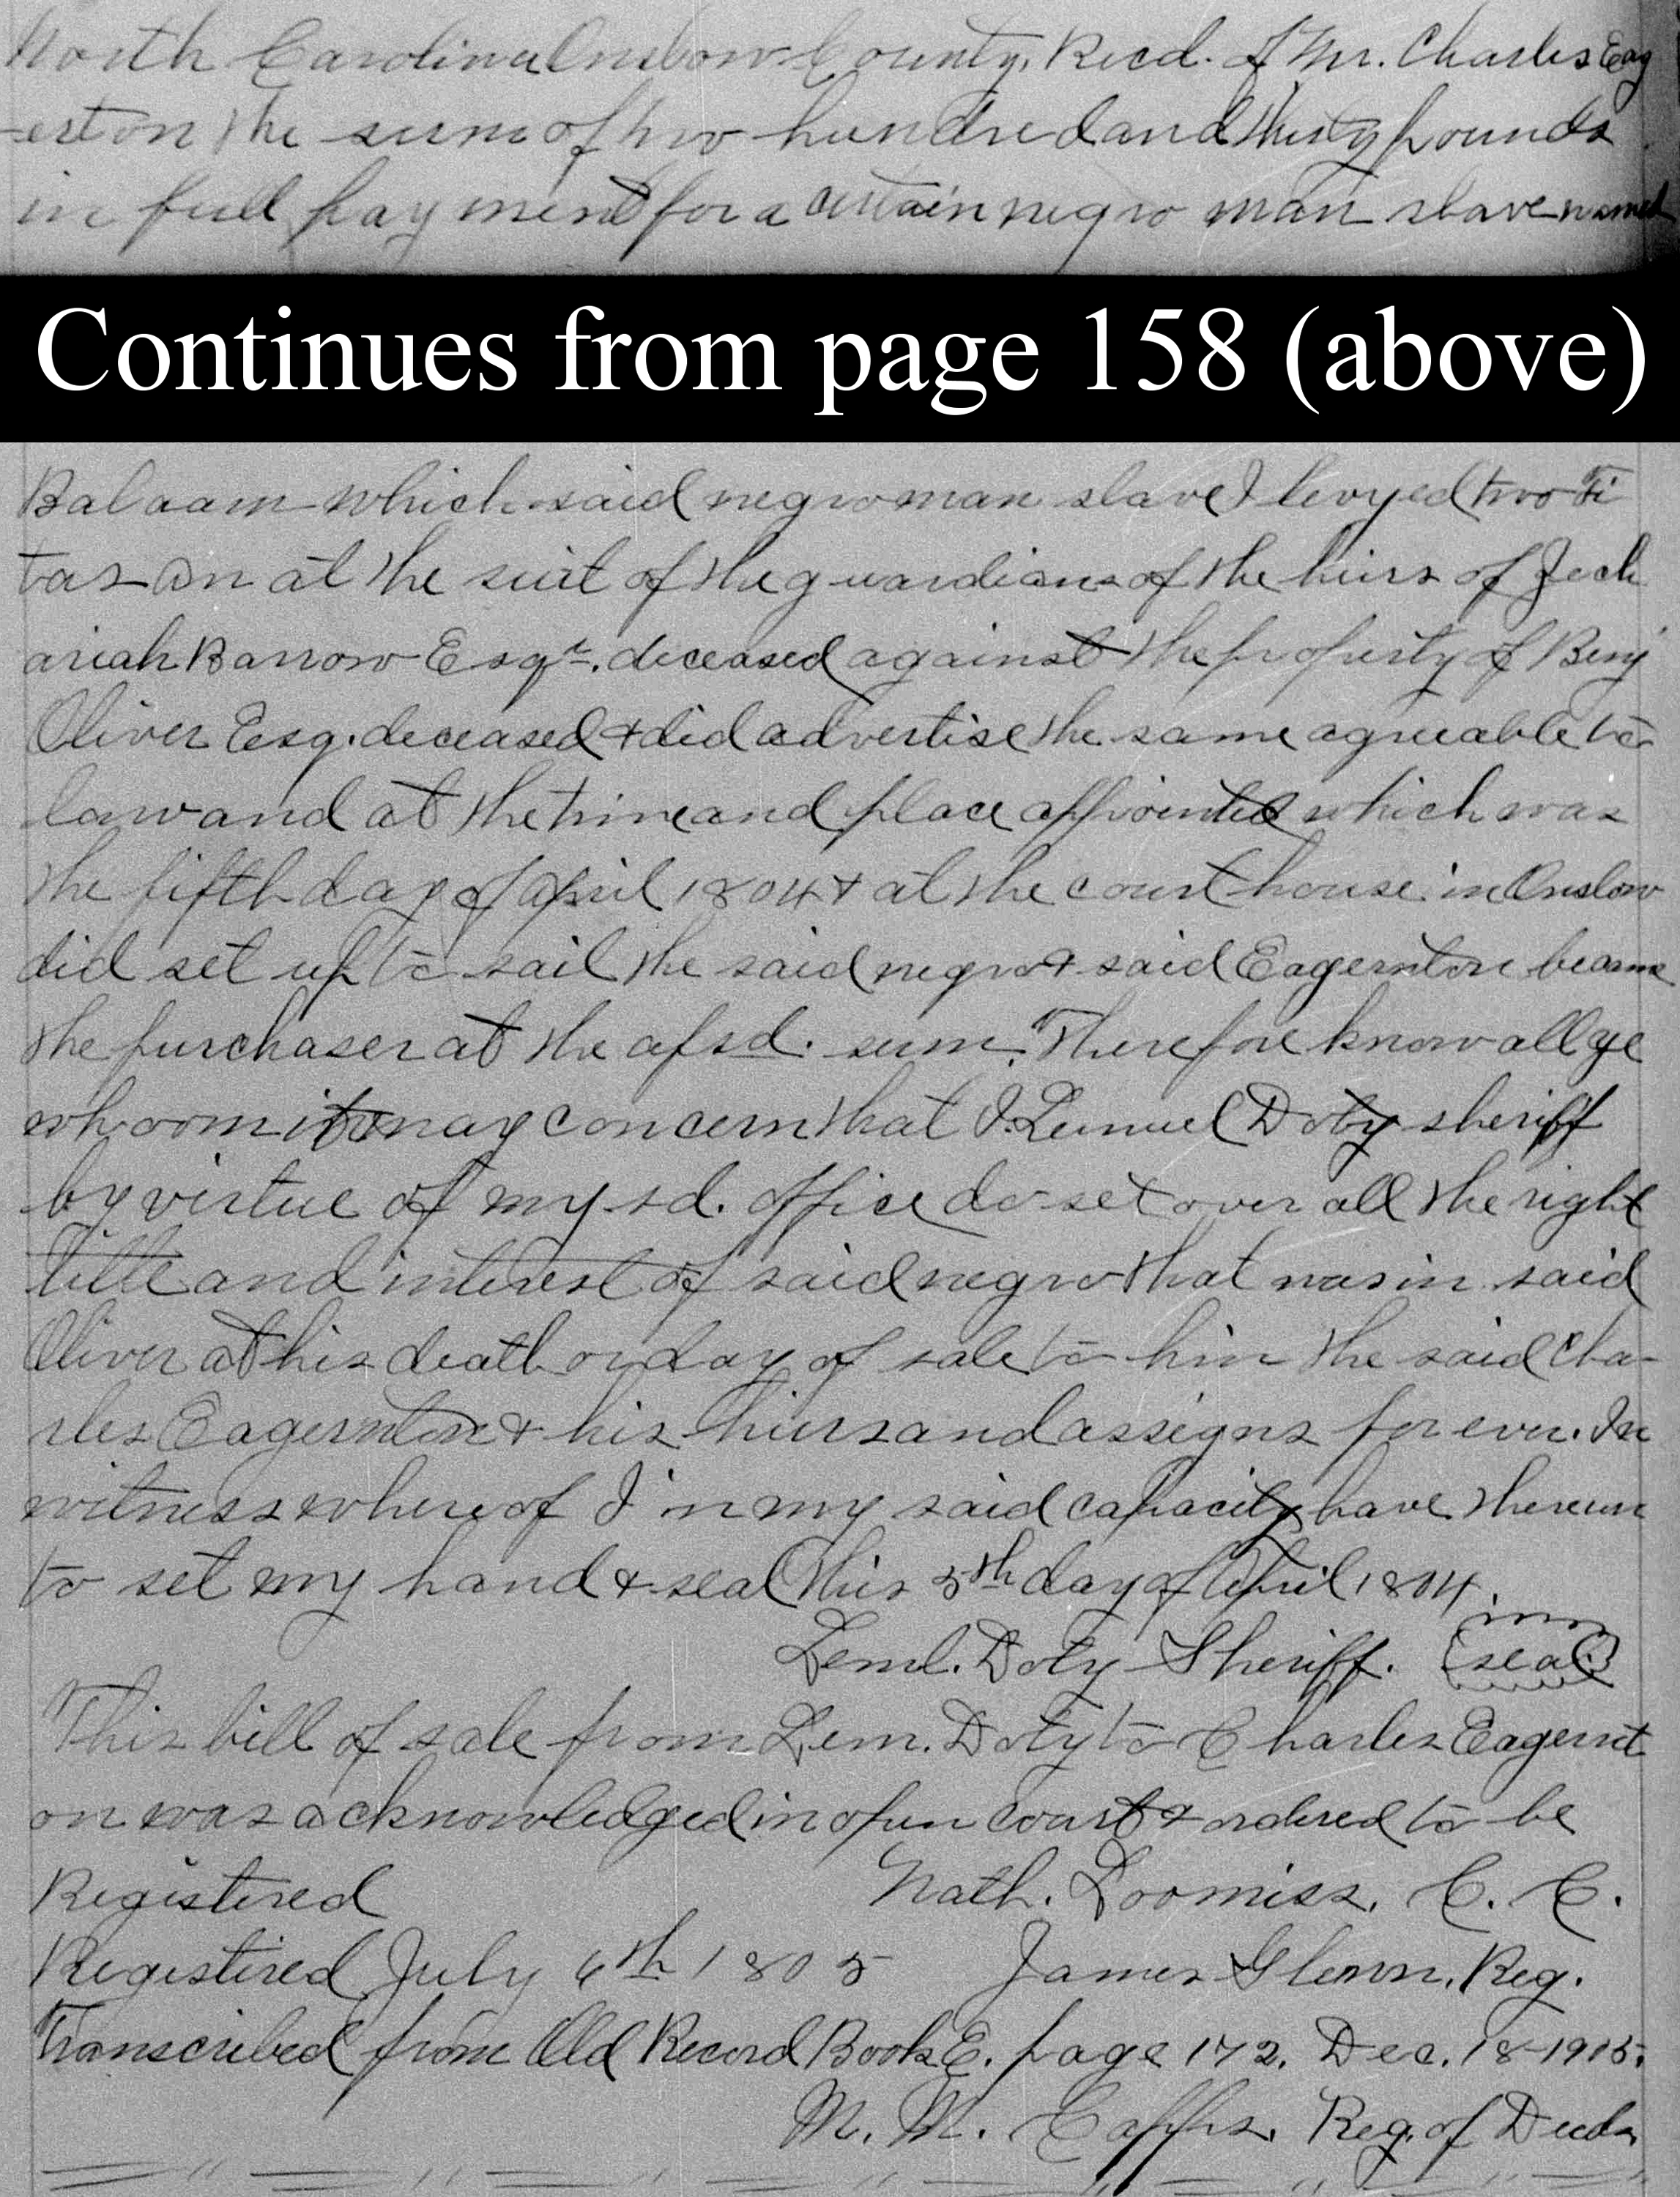 North Carolina Onslow County. Recd. of Mr. Charles Eag
-erston the sum of two hundred and thirty pounds
in full payment for a certain negro man slave named
Continues from page 158 (above)
Balaam which said negro man slave I levyed two Fi
tas on at the suit of the guardians of the heirs of Zech
ariah Barrow Esqr. deceased against the property of Benj
Oliver Esq. deceased & did advertise the same agreeable to
law and at the time and place appointed which was
the fifth day of April 1804 & at the court house in Onslow
did set up to sail the said negro & said Eagernton became
the purchaser at the afsd. sum. Therefore know all ye
whoom it may concern that I. Lemuel Doty sheriff
by virtue of my sd. office do set over all the right
title and interest of said negro that was in said
Oliver at his death or day of sale to him the said Cha-
rles Eagernton & his heirs and assigns for ever. In
witness where of I in my said capacity have thereun
to set my hand & seal this 5th day of April 1804.
Leml. Doty Sheriff. (seal)
This bill of sale from Lem. Doty to Charles Eagernt
on was acknowledged in open court & ordered to be
Registered Nath. Loomiss. C. C.
Registered July 6th 1805 James Glenn. Reg.
Transcribed from Old Record Book E. page 172. Dec. 18-1915.
M. M. Capps. Reg. of Deeds